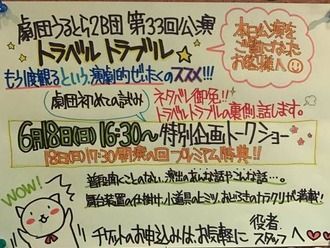 劇団うるとら2B団 第33回公演
トラベルトラブル★
本日公演を
ご覧になった
お客様へ
もう1度観るという、演劇的ぜいたくのススメ!!!
劇団初めての試み
ネタバレ御免!!!
トラベルトラブルの裏側話します。
6月18日(日)16:30~特別企画トークショー
18日(日)17:30開演の回プレミアム特典!!
普段聞くことのない、演出のあんな話やこんな話…。
舞台装置の仕掛け、小道具のヒミツ、おどろきのカラクリが満載!
WOW!
チケットのお申込みは、お気軽に
役者
スタッフへ